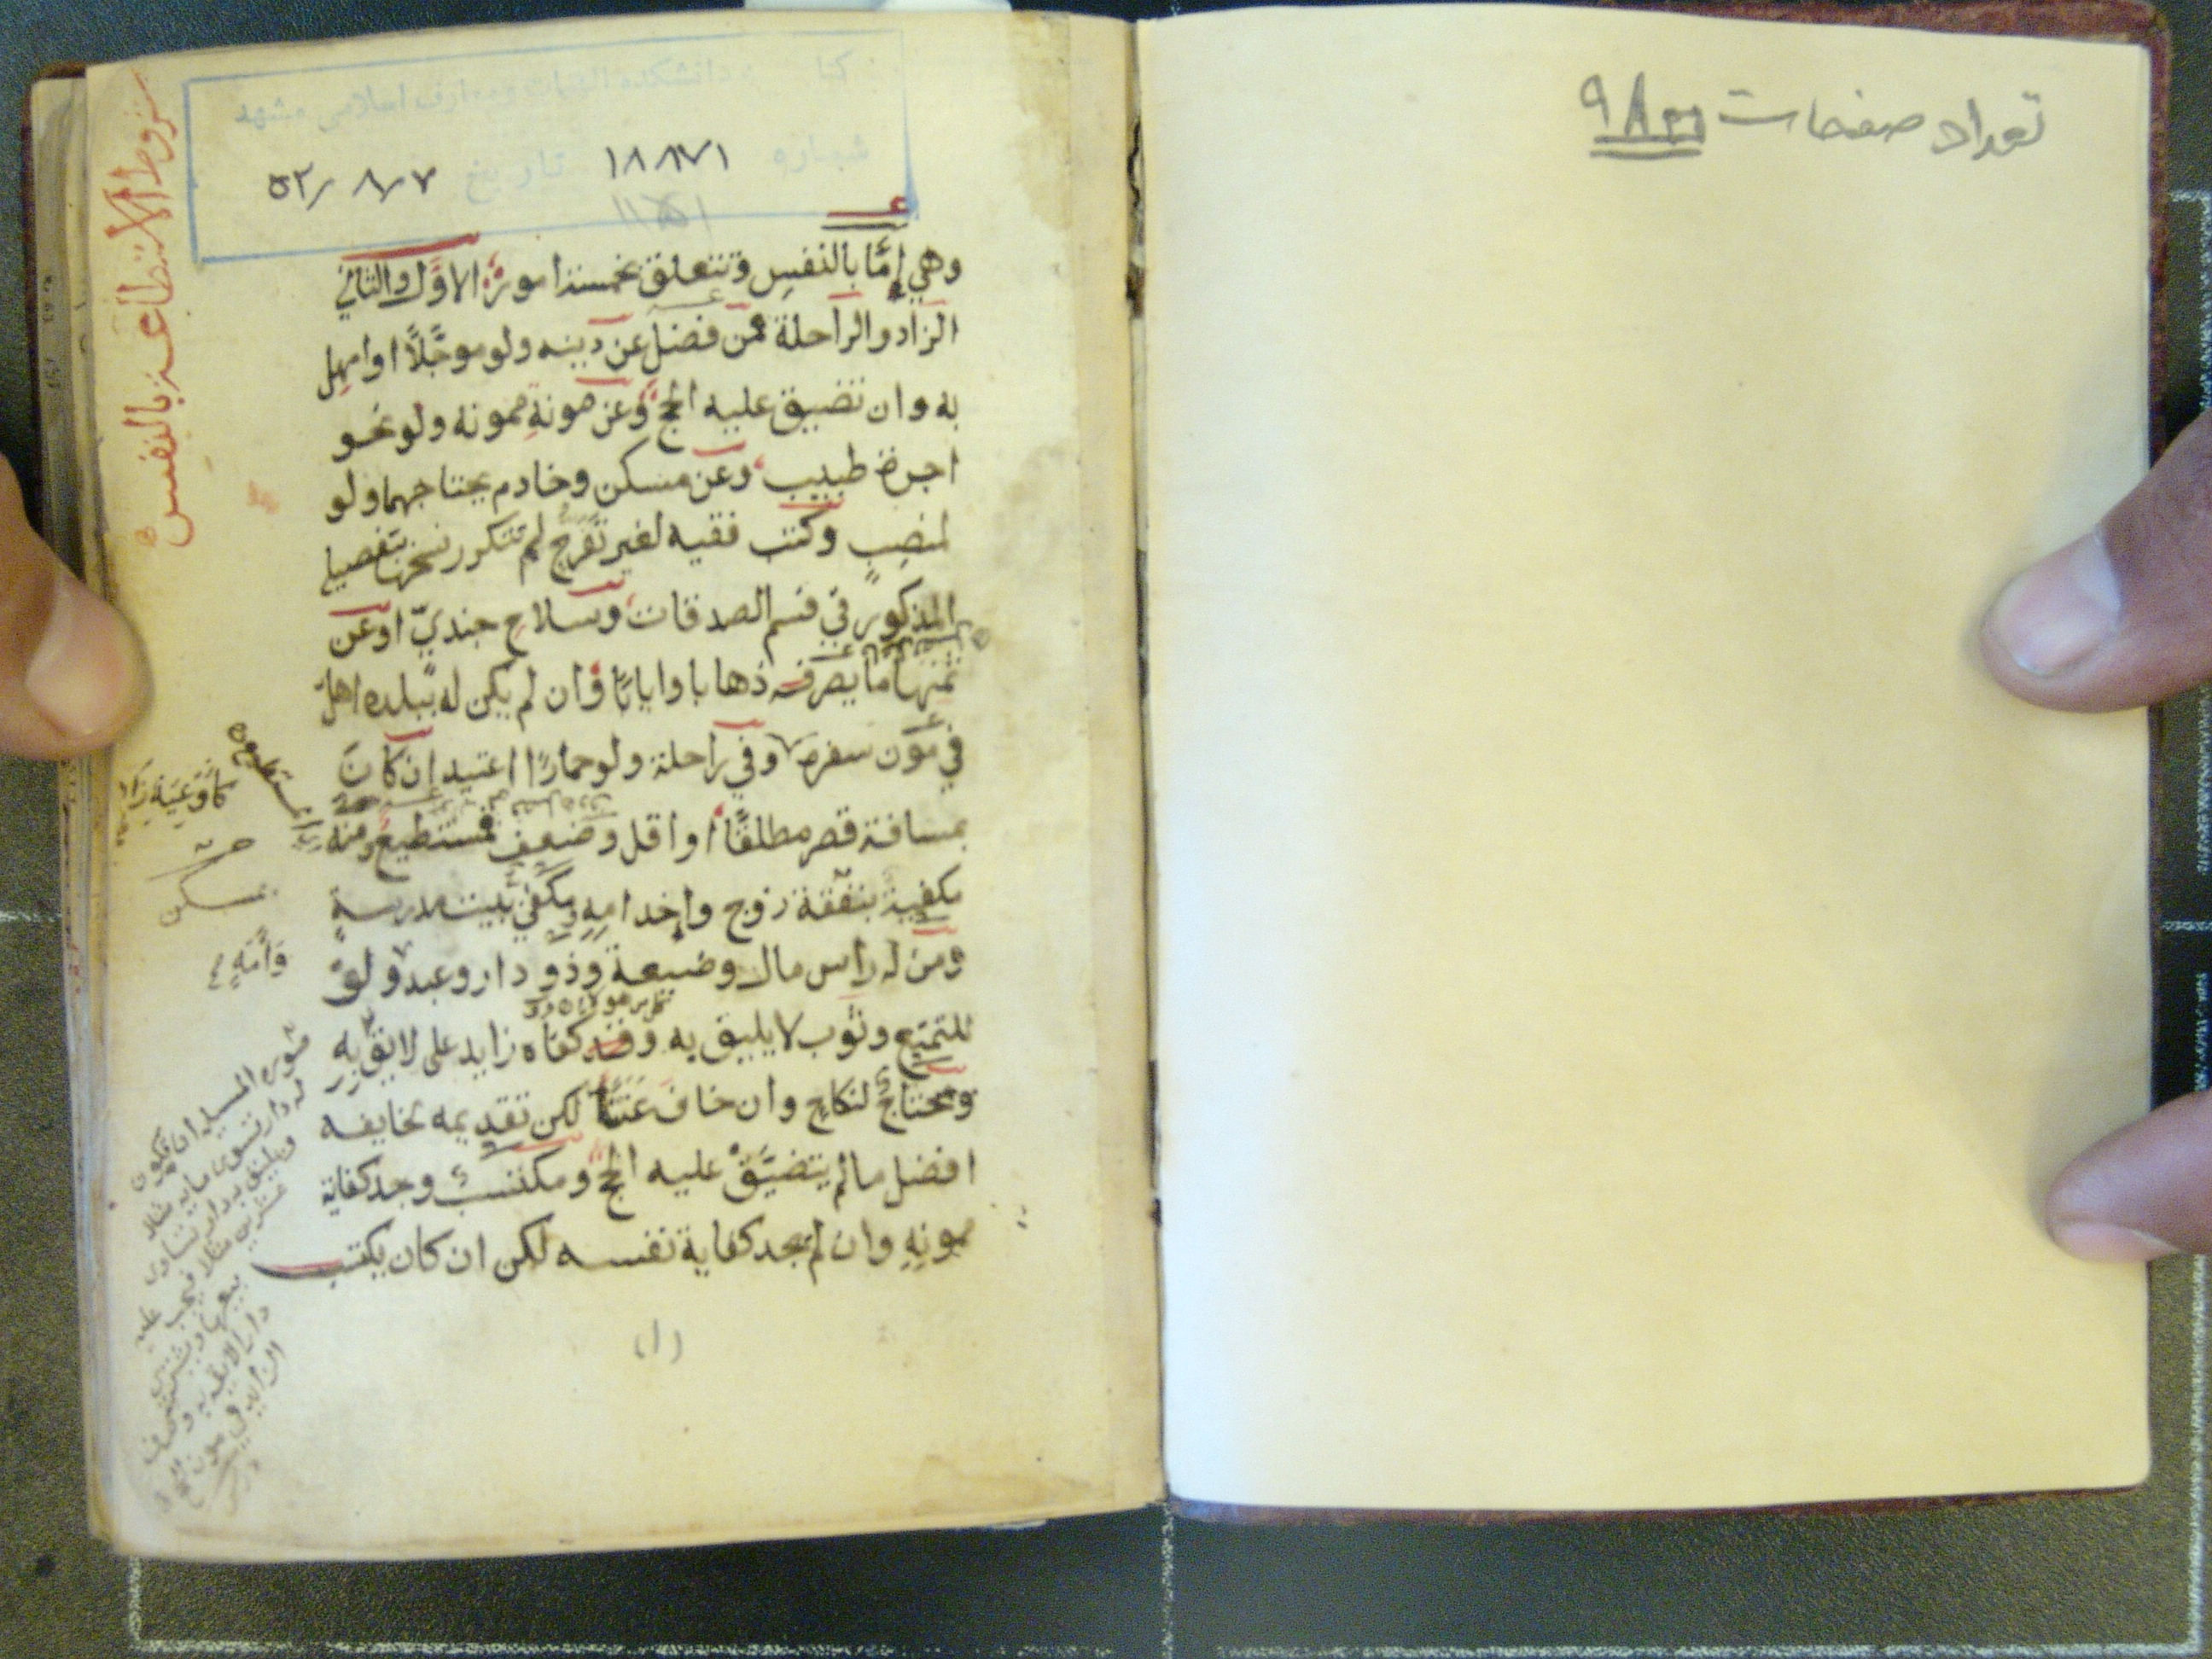 تعداد صفحات
دانشكده الهيات ومعارف اسلامى مشهد
شماره ١٨٨٧١ تاريخ ٥٢/٨/٧
شروط الاستطاعة بالنفس
وهي إمّا بالنفسِ وتتعلق بخمسة امور الاوّل والثاني
الزاد والراحلة ممن فضل عن دينه ولو موجّلًا او امهل
به وان تضيق عليه الحج وعن مونةِ ممونه ولو نحو
اجرة طبيب وعن مسكن وخادم يحتاجهما ولو
لمنصبٍ وكتب فقيه لغير تفرج لم تتكرر نسخها بتفصيل
المذكور في قسم الصدقات وسلاحِ جنديّ اوعن
ثمنها ما يصرفه ذهابا وايابا وان لم يكن له ببلده اهل
في مون سفره وفي راحلة ولو حمارًا اعتيد ان كان
بمسافة قصر مطلقًا او اقل وضعف فمستطيع ومنه
مكفية بنفقة زوج وإخدامِهِ ومكفيّ ببيت مدرسةٍ
ومن له راس مال وضيعة وذو دار وعبد ولو
للتمتع وثوب لا يليق به وقد كفاه زايد على لايق به
ومحتاج لنكاح وان خاف عَنَتًا لكن تقديمه لخايفه
افضل مالم يتضيَّقْ عليه الحج ومكتسب وجد كفاية
ممونِهِ وان لم يجد كفاية نفسه لكن ان كان يكتسب
مسكن
وَأَمَةٍ
صورة المسيلة ان يكون
له دار تسوى مايه مثلا
ويليق به دار تساوى
عشرين مثلا فيجب عليه
بيعها ويشترى
دار لايقه به ويصرف
الزايد في مون الحج
(١)